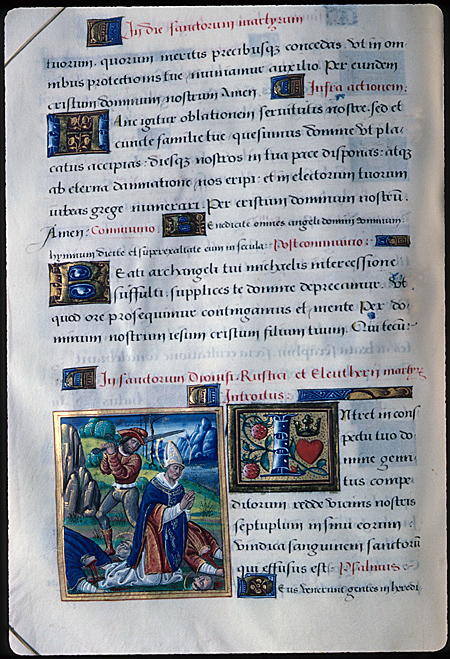 In die sanctorum martyrum
tuorum. quorum meritis precibusq; concedas. Vt in om-
nibus protectionis tue, muniamur auxilio. Per eundem
cristum dominum nostrum Amen. Infra actionem:
Hanc igitur oblationem seruitutis nostre. sed et
cuncte familie tue. quesumus domine Vt pla-
catus accipias: diesq; nostros in tua pace disponas: atq;
ab eterna damnatione, nos eripi: et in electorum tuorum
iubeas grege numerari. Per cristum dominum nostrū.
Amen: Communio. Benedicite omnes angeli domini dominum:
hymnum dicite et superexaltate eum in secula: Postcommunio:
Beati archangeli tui michaelis intercessione
suffulti: supplices te domine deprecamur. Vt
quod ore prosequimur contingamus et mente. Per do-
minum nostrum iesum cristum filium tuum. Qui tecum
In sanctorum Dionisi. Rustici et Eleutherii martyrū
Introitus:
INtret in cons
pectu tuo do-
mine gemi-
tus compe-
ditorum. redde vicinis nostris
septuplum in sinu eorum
vindica sanguinem sanctorū
qui effusus est:. Psalmus:
Deus venerunt gentes in heredi